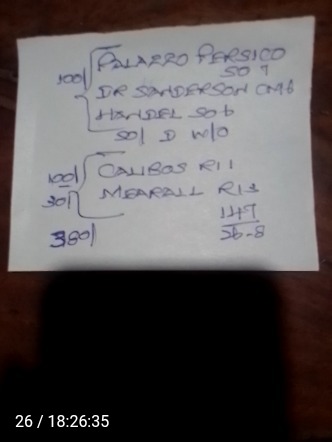 100/ PALAZZO PERSICO
SO 7
DR SANDERSON CM6
HANDEL SO6
50/ D W/O
100/ CALIBOS R11
30/ MEARALL R13
147
380/ 26-8
26 / 18:26:35